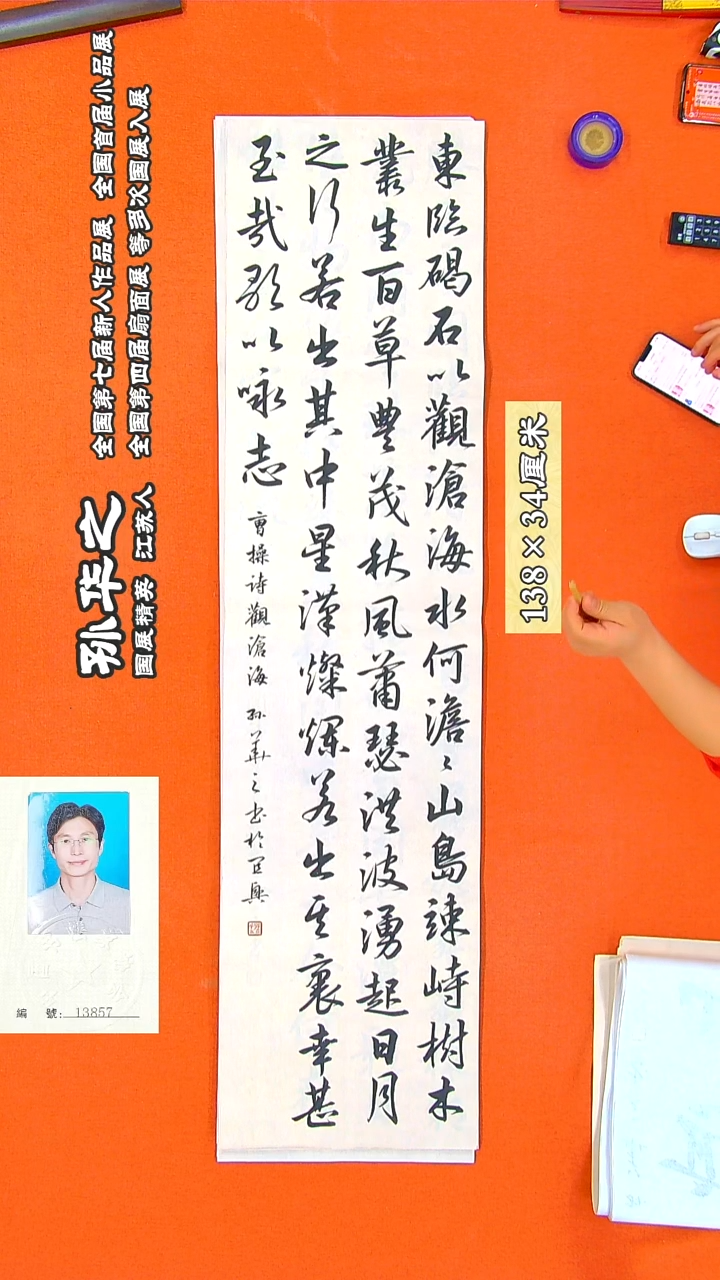 東臨碣石以觀滄海水何澹〻山島竦峙樹木
叢生百草豐茂秋風蕭瑟洪波湧起日月
之行若出其中星漢燦爛若出其裏幸甚
至哉歌以咏志 曹操诗觀滄海 孙華之书於宜興
138×34厘米
孙华之
国展精英 江苏人
全国第七届新人作品展 全国首届小品展
全国第四届扇面展 等多次国展入展
編 號: 13857